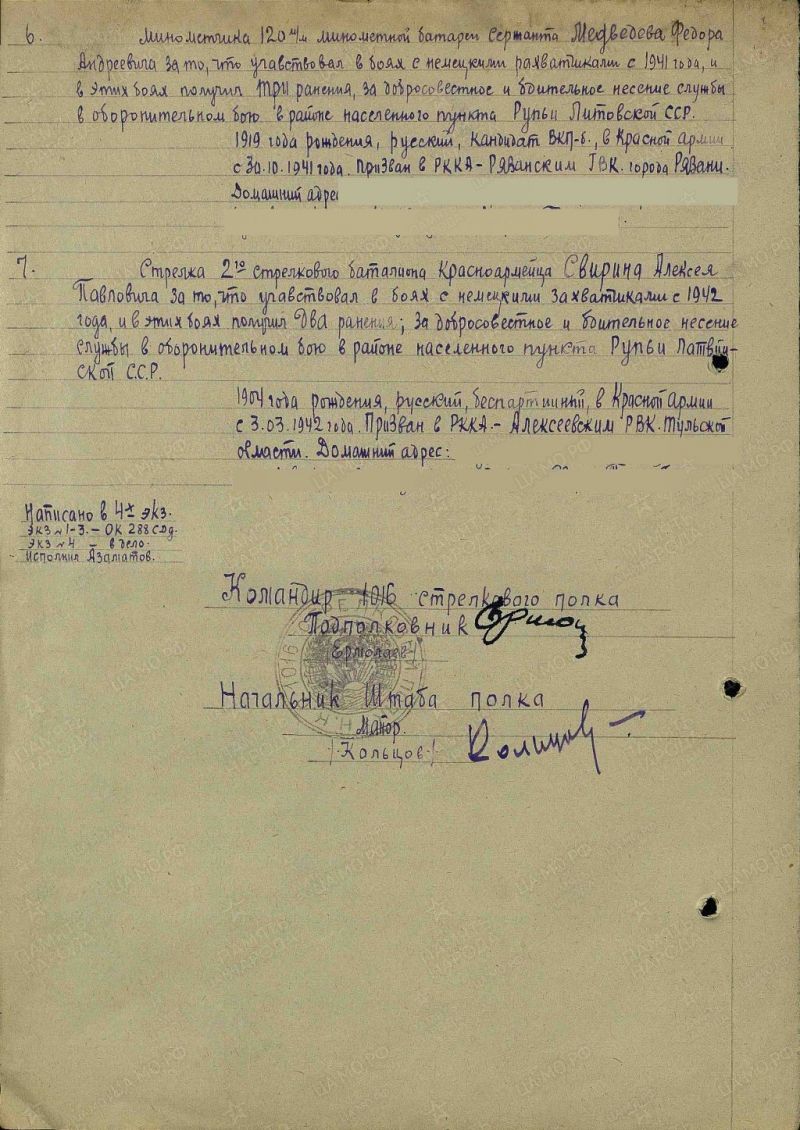 6. Минометчика 120 м/м минометной батареи Сержанта Медведева Федора
Андреевича за то, что учавствовал в боях с немецкими рахватчиками с 1941 года, и
в этих боях получил три ранения, за добросовестное и бдительное несение службы
в оборонительном бою в районе населенного пункта Рупьи Литовской ССР.
1919 года рождения, русский, кандидат ВКП-б., в Красной Армии
с 30.10.1941 года. Призван в РККА - Рязанским ГВК. города Рязани.
Домашний адрес
7. Стрелка 2го стрелкового баталиона Красноармейца Свирина Алексея
Павловича за то, что учавствовал в боях с немецкими захватчиками с 1942
года, и в этих боях получил два ранения; за добросовестное и бдительное несение
службы в оборонительном бою в районе населенного пункта Рупьи Латвий-
ской ССР.
1904 года рождения, русский, беспартийный, в Красной Армии
с 3.03.1942 года. Призван в РККА. - Алексеевским РВК. Тульской
области. Домашний адрес:
Написано в 4х экз.
экз № 1-3. - ОК 288 сдд.
экз № 4 - в дело.
Исполнил Азаматов.
Командир 1016 стрелкового полка
Подполковник
/Ермолаев/
Начальник Штаба полка
Майор.
/Кольцов/